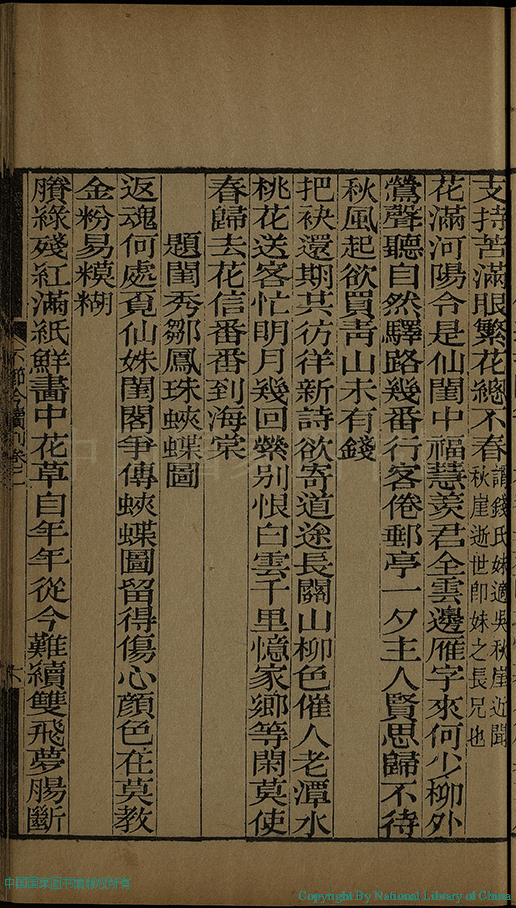 支持苦滿眼繁花總不春謂錢氏妹適吳秋崖近聞秋崖逝世卽妹之長兄也
花滿河陽令是仙閨中福慧羨君全雲邊雁字來何少柳外
鶯聲聽自然驛路幾番行客倦郵亭一夕主人賢思歸不待
秋風起欲買靑山未有錢
把袂還期共彷徉新詩欲寄道途長關山柳色催人老潭水
桃花送客忙明月幾回縈別恨白雲千里憶家鄉等閑莫使
春歸去花信番番到海棠
題閨秀鄒鳳珠蛺蝶圖
返魂何處覓仙姝閨閣爭傳蛺蝶圖留得傷心顏色在莫敎
金粉易糢糊
賸綠殘紅滿紙鮮畵中花草自年年從今難續雙飛夢腸斷
中国国家图书馆版权所有
Copyright By National Library of China